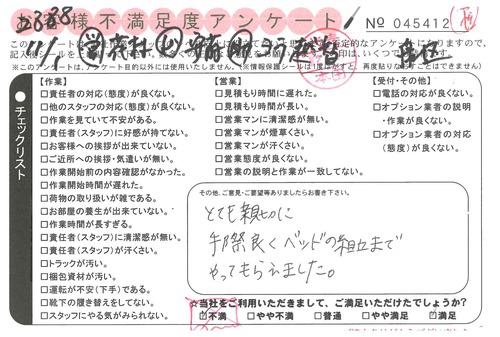 お客様不満足度アンケート
No 045412
11/1
※このアンケートは、アンケート目的以外には使用いたしません。
チェックリスト
【作業】
□責任者の対応(態度)が良くない。
□他のスタッフの対応(態度)が良くない。
□作業を見ていて不安がある。
□責任者(スタッフ)に好感が持てない。
□お客様への挨拶が出来ていない。
□ご近所への挨拶・気遣いが無い。
□作業開始前の内容確認がなかった。
□作業開始時間が遅れた。
□荷物の取り扱いが雑である。
□お部屋の養生が出来ていない。
□作業時間が長すぎる。
□責任者(スタッフ)に清潔感が無い。
□責任者(スタッフ)が汗くさい。
□トラックが汚い。
□梱包資材が汚い。
□運転が不安(下手)である。
□靴下の履き替えをしてない。
□スタッフにやる気がみられない。
【営業】
□見積もり時間に遅れた。
□見積もり時間が長い。
□営業マンに清潔感が無い。
□営業マンが煙草くさい。
□営業マンが汗くさい。
□営業態度が良くない。
□営業の説明と作業が一致してない。
【受付・その他】
□電話の対応が良くない。
□オプション業者の説明
・作業が良くない。
□オプション業者の対応
(態度)が良くない。
その他、ご意見・ご要望等ありましたらお書き下さい。
とても親切に
手際良くベッドの組立まで
やってもらえました。
☆当社をご利用いただきまして、ご満足いただけたでしょうか?
□不満 □やや不満 □普通 □やや満足 ☑満足